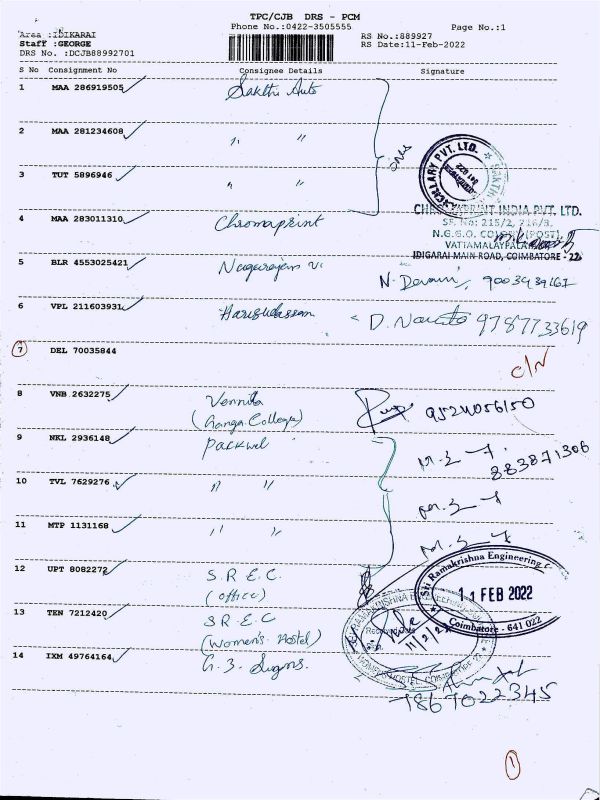 TPC/CJB DRS - PCM
Phone No.:0422-3505555
Page No.:1
Area :IDIKARAI
Staff :GEORGE
DRS No. :DCJB88992701
RS No.:889927
RS Date:11-Feb-2022
S No Consignment No Consignee Details Signature
1 MAA 286919505 Sakthi Auto
2 MAA 281234608 〃 〃
3 TUT 5896946 〃 〃
4 MAA 283011310 Chromaprint
CHROMAPRINT INDIA PVT. LTD.
SF. No: 215/2, 216/3,
N.G.G.O. COLONY (POST),
VATTAMALAIPALAYAM
IDIGARAI MAIN ROAD, COIMBATORE - 22
5 BLR 4553025421 Nagarajan V. 9003939167
6 VPL 211603931 D. 9787733619
7 DEL 70035844 C/N
8 VNB 2632275 Vennila
(Ganga College) 9524056150
9 NKL 2936148 Packwel
883871306
10 TVL 7629276 〃 〃
11 MTP 1131168 〃 〃
12 UPT 8082272 S.R.E.C.
(office)
Sri Ramakrishna Engineering
11 FEB 2022
Coimbatore - 641 022
13 TEN 7212420 S.R.E.C
(Women's Hostel)
11/2/22
14 IXM 49764164 G.3.
7867022345
1